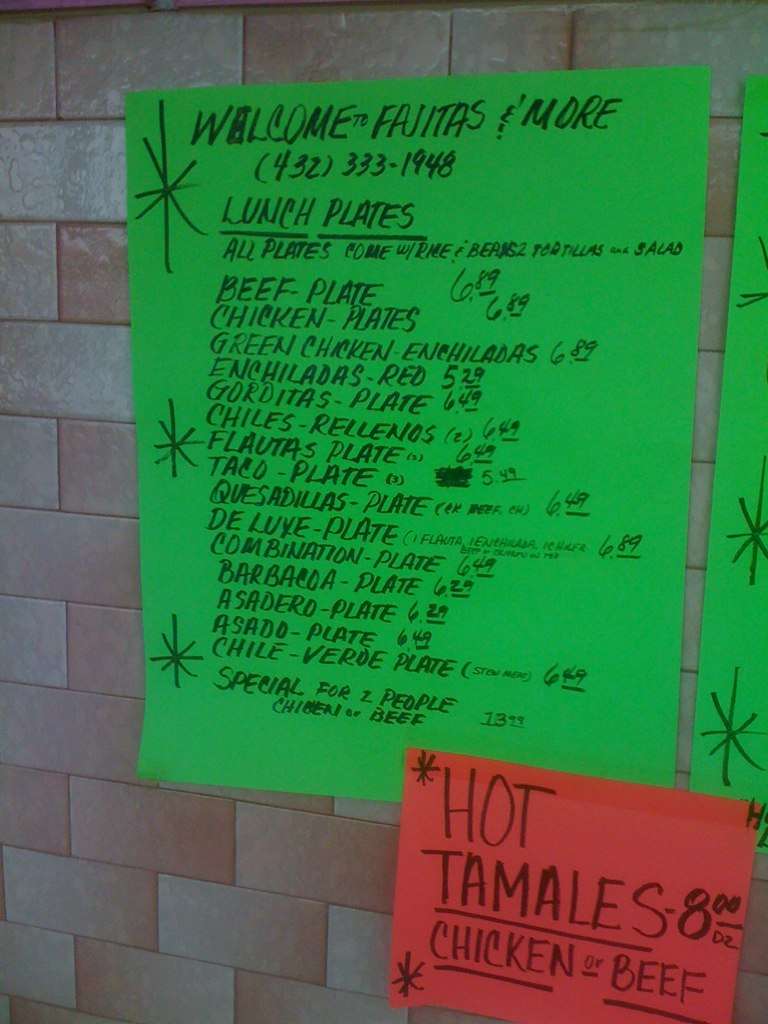 WELCOME TO FAJITAS & MORE
(432) 333-1948
LUNCH PLATES
ALL PLATES COME W/RICE & BEANS 2 TORTILLAS and SALAD
BEEF PLATE 6.89
CHICKEN - PLATES 6.89
GREEN CHICKEN - ENCHILADAS 6.89
ENCHILADAS - RED 5.29
GORDITAS - PLATE 6.49
CHILES - RELLENOS (2) 6.49
FLAUTAS PLATE 6.49
TACO - PLATE (3) 5.49
QUESADILLAS - PLATE (CK BEEF, CH) 6.49
DE LUXE - PLATE (1 FLAUTA, 1 ENCHILADA, 1 CHILE R. 6.89
COMBINATION - PLATE 6.49
BARBACOA - PLATE 6.29
ASADERO - PLATE 6.29
ASADO - PLATE 6.49
CHILE - VERDE PLATE (STEW MEAT) 6.49
SPECIAL FOR 2 PEOPLE
CHICEN or BEEF 13.99
HOT
TAMALES - 8.00 DZ
CHICKEN or BEEF